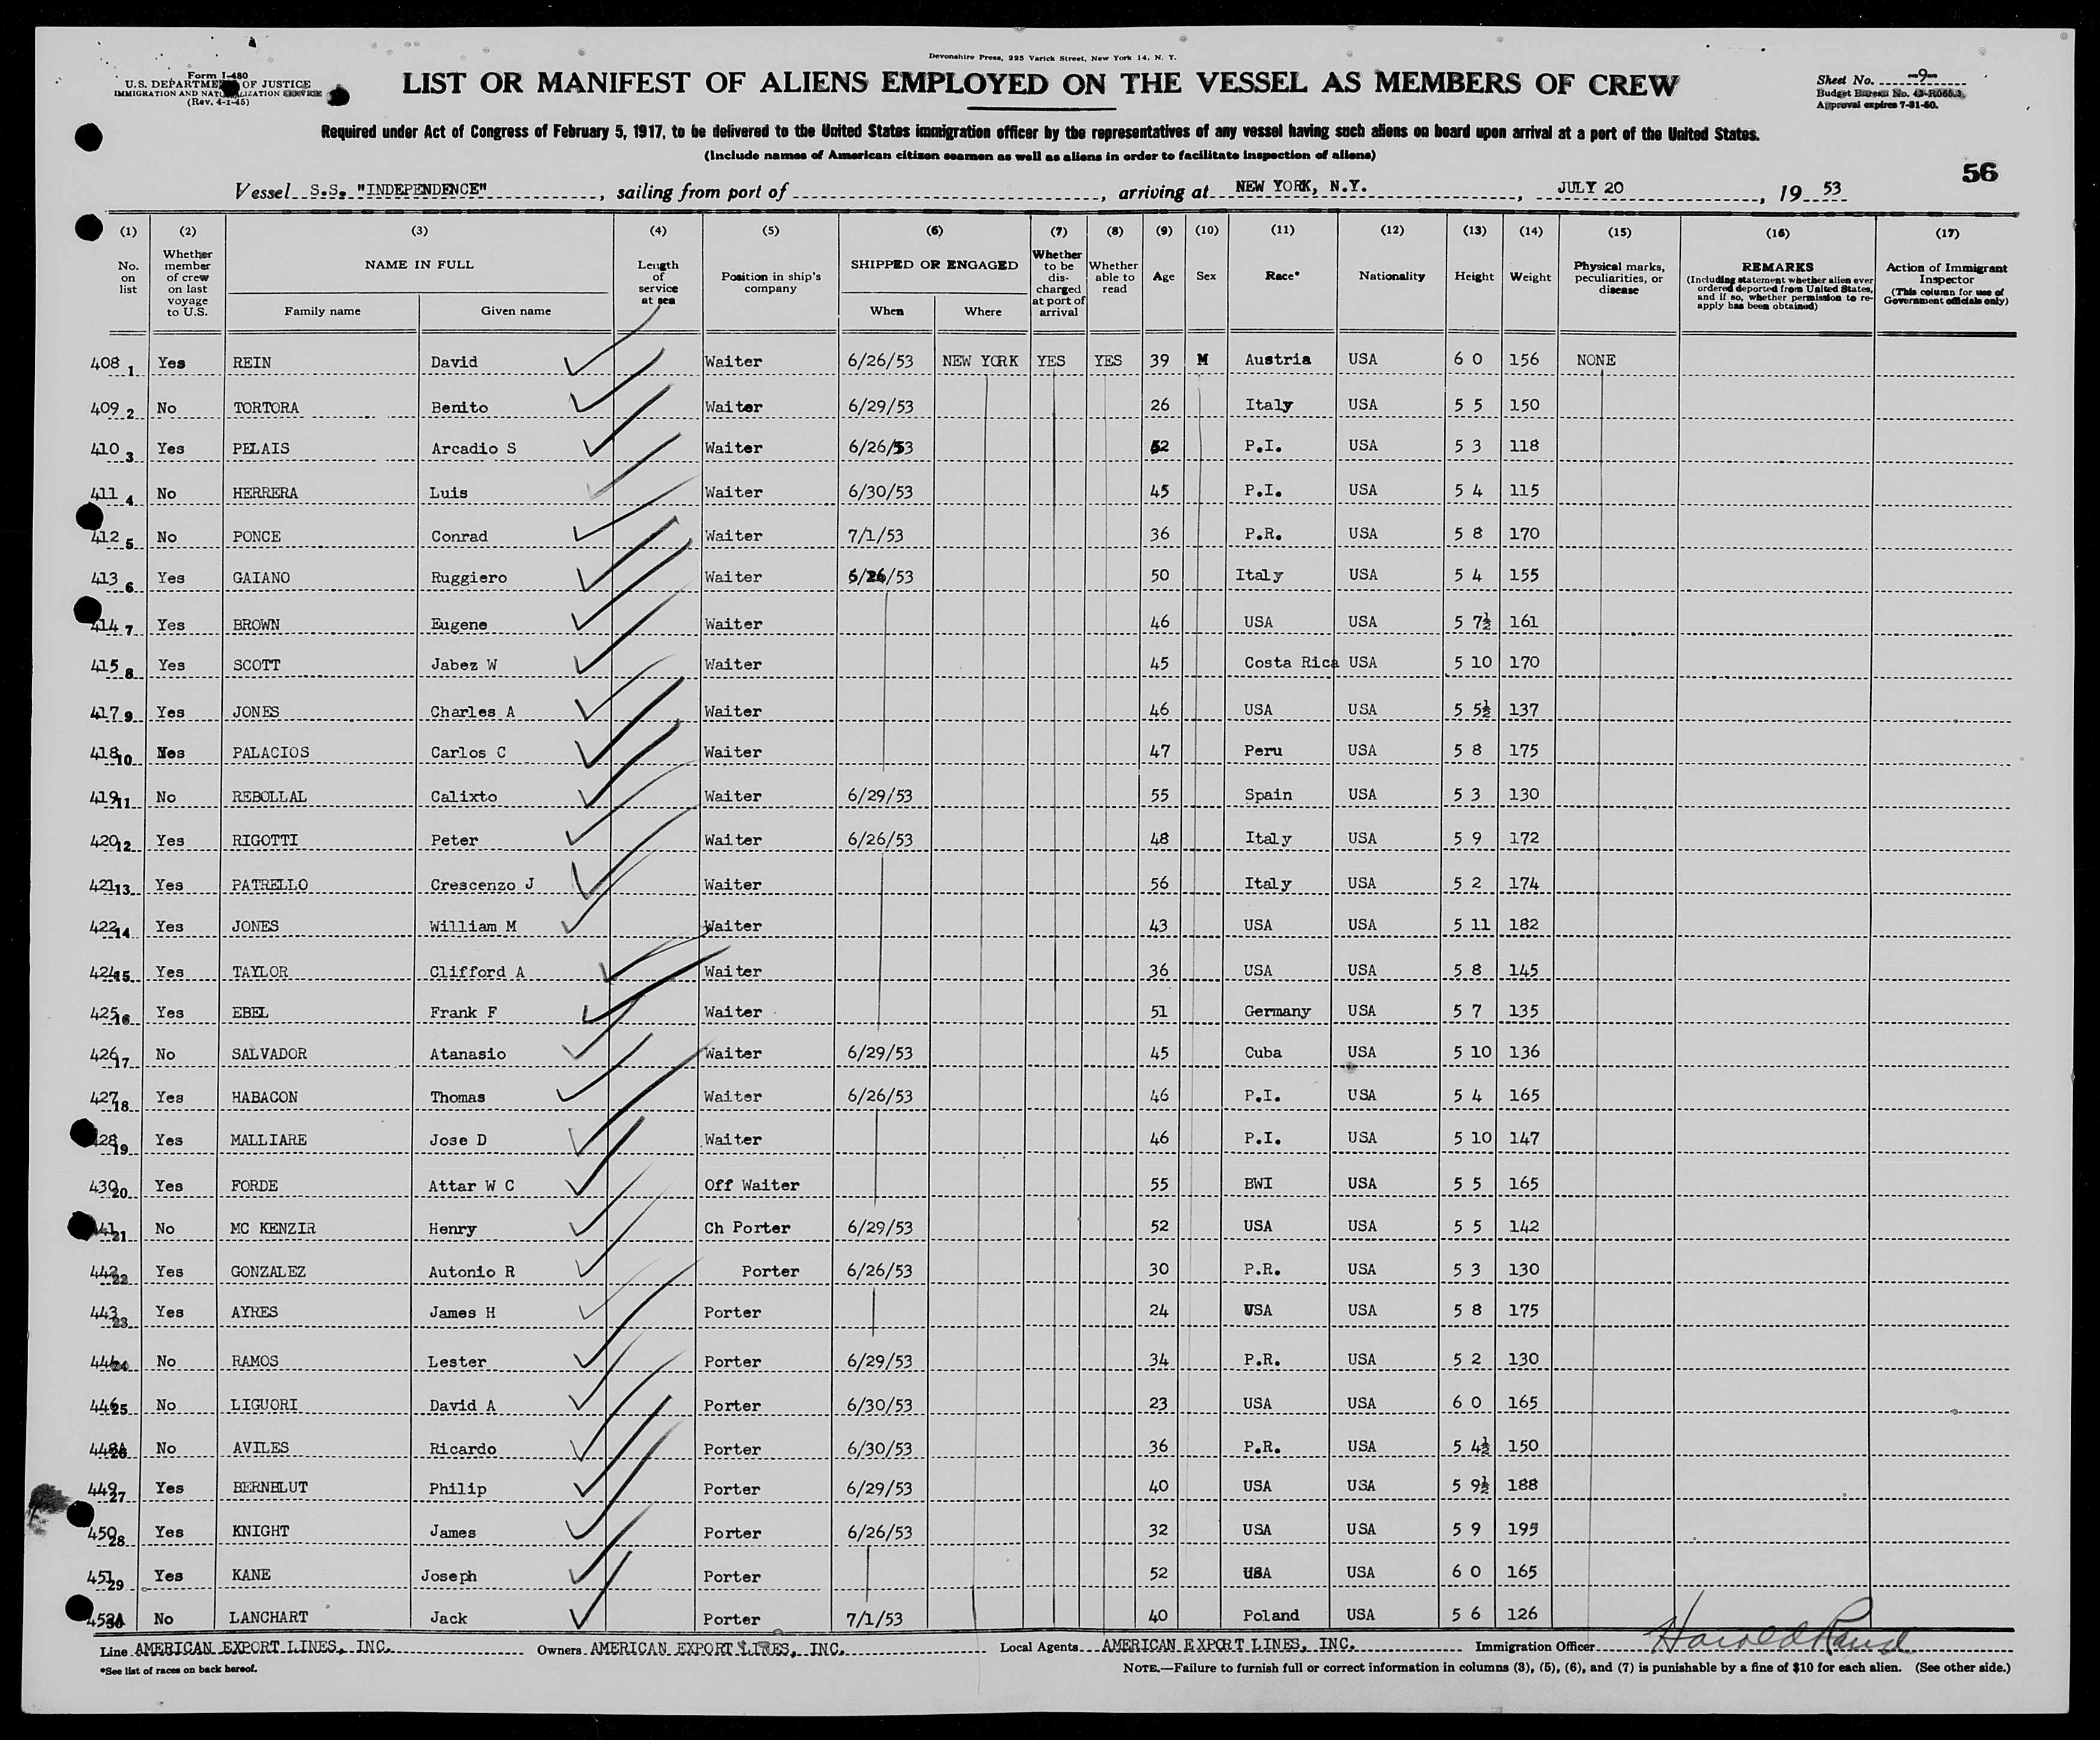 Devonshire Press, 225 Varick Street, New York 14, N. Y.
Form I-480
U.S. DEPARTMENT OF JUSTICE
IMMIGRATION AND NATURALIZATION SERVICE
(Rev. 4-1-45)
LIST OR MANIFEST OF ALIENS EMPLOYED ON THE VESSEL AS MEMBERS OF CREW
Sheet No. -9-
Budget Bureau No.
Approval expires 7-31-50.
Required under Act of Congress of February 5, 1917, to be delivered to the United States immigration officer by the representatives of any vessel having such aliens on board upon arrival at a port of the United States.
(Include names of American citizen seamen as well as aliens in order to facilitate inspection of aliens)
56
Vessel S.S. "INDEPENDENCE", sailing from port of , arriving at NEW YORK, N.Y., JULY 20, 19 53
(1) (2) (3) (4) (5) (6) (7) (8) (9) (10) (11) (12) (13) (14) (15) (16) (17)
No. on list
Whether member of crew on last voyage to U.S.
NAME IN FULL
Family name Given name
Length of service at sea
Position in ship's company
SHIPPED OR ENGAGED
When Where
Whether to be discharged at port of arrival
Whether able to read
Age
Sex
Race*
Nationality
Height
Weight
Physical marks, peculiarities, or disease
REMARKS
(Including statement whether alien ever ordered deported from United States, and if so, whether permission to re-apply has been obtained)
Action of Immigrant Inspector
(This column for use of Government officials only)
408 1 Yes REIN David Waiter 6/26/53 NEW YORK YES YES 39 M Austria USA 6 0 156 NONE
409 2 No TORTORA Benito Waiter 6/29/53 26 Italy USA 5 5 150
410 3 Yes PELAIS Arcadio S Waiter 6/26/53 52 P.I. USA 5 3 118
411 4 No HERRERA Luis Waiter 6/30/53 45 P.I. USA 5 4 115
412 5 No PONCE Conrad Waiter 7/1/53 36 P.R. USA 5 8 170
413 6 Yes GAIANO Ruggiero Waiter 6/26/53 50 Italy USA 5 4 155
414 7 Yes BROWN Eugene Waiter 46 USA USA 5 7½ 161
415 8 Yes SCOTT Jabez W Waiter 45 Costa Rica USA 5 10 170
417 9 Yes JONES Charles A Waiter 46 USA USA 5 5½ 137
418 10 Yes PALACIOS Carlos C Waiter 47 Peru USA 5 8 175
419 11 No REBOLLAL Calixto Waiter 6/29/53 55 Spain USA 5 3 130
420 12 Yes RIGOTTI Peter Waiter 6/26/53 48 Italy USA 5 9 172
421 13 Yes PATRELLO Crescenzo J Waiter 56 Italy USA 5 2 174
422 14 Yes JONES William M Waiter 43 USA USA 5 11 182
424 15 Yes TAYLOR Clifford A Waiter 36 USA USA 5 8 145
425 16 Yes EBEL Frank F Waiter 51 Germany USA 5 7 135
426 17 No SALVADOR Atanasio Waiter 6/29/53 45 Cuba USA 5 10 136
427 18 Yes HABACON Thomas Waiter 6/26/53 46 P.I. USA 5 4 165
428 19 Yes MALLIARE Jose D Waiter 46 P.I. USA 5 10 147
430 20 Yes FORDE Attar W C Off Waiter 55 BWI USA 5 5 165
441 21 No MC KENZIR Henry Ch Porter 6/29/53 52 USA USA 5 5 142
442 22 Yes GONZALEZ Autonio R Porter 6/26/53 30 P.R. USA 5 3 130
443 23 Yes AYRES James H Porter 24 USA USA 5 8 175
444 24 No RAMOS Lester Porter 6/29/53 34 P.R. USA 5 2 130
446 25 No LIGUORI David A Porter 6/30/53 23 USA USA 6 0 165
448A 26 No AVILES Ricardo Porter 6/30/53 36 P.R. USA 5 4½ 150
449 27 Yes BERNBLUT Philip Porter 6/29/53 40 USA USA 5 9½ 188
450 28 Yes KNIGHT James Porter 6/26/53 32 USA USA 5 9 195
451 29 Yes KANE Joseph Porter 52 USA USA 6 0 165
452A 30 No LANCHART Jack Porter 7/1/53 40 Poland USA 5 6 126
Line AMERICAN EXPORT LINES, INC. Owners AMERICAN EXPORT LINES, INC. Local Agents AMERICAN EXPORT LINES, INC. Immigration Officer Harold Rand
*See list of races on back hereof.
NOTE.—Failure to furnish full or correct information in columns (3), (5), (6), and (7) is punishable by a fine of $10 for each alien. (See other side.)